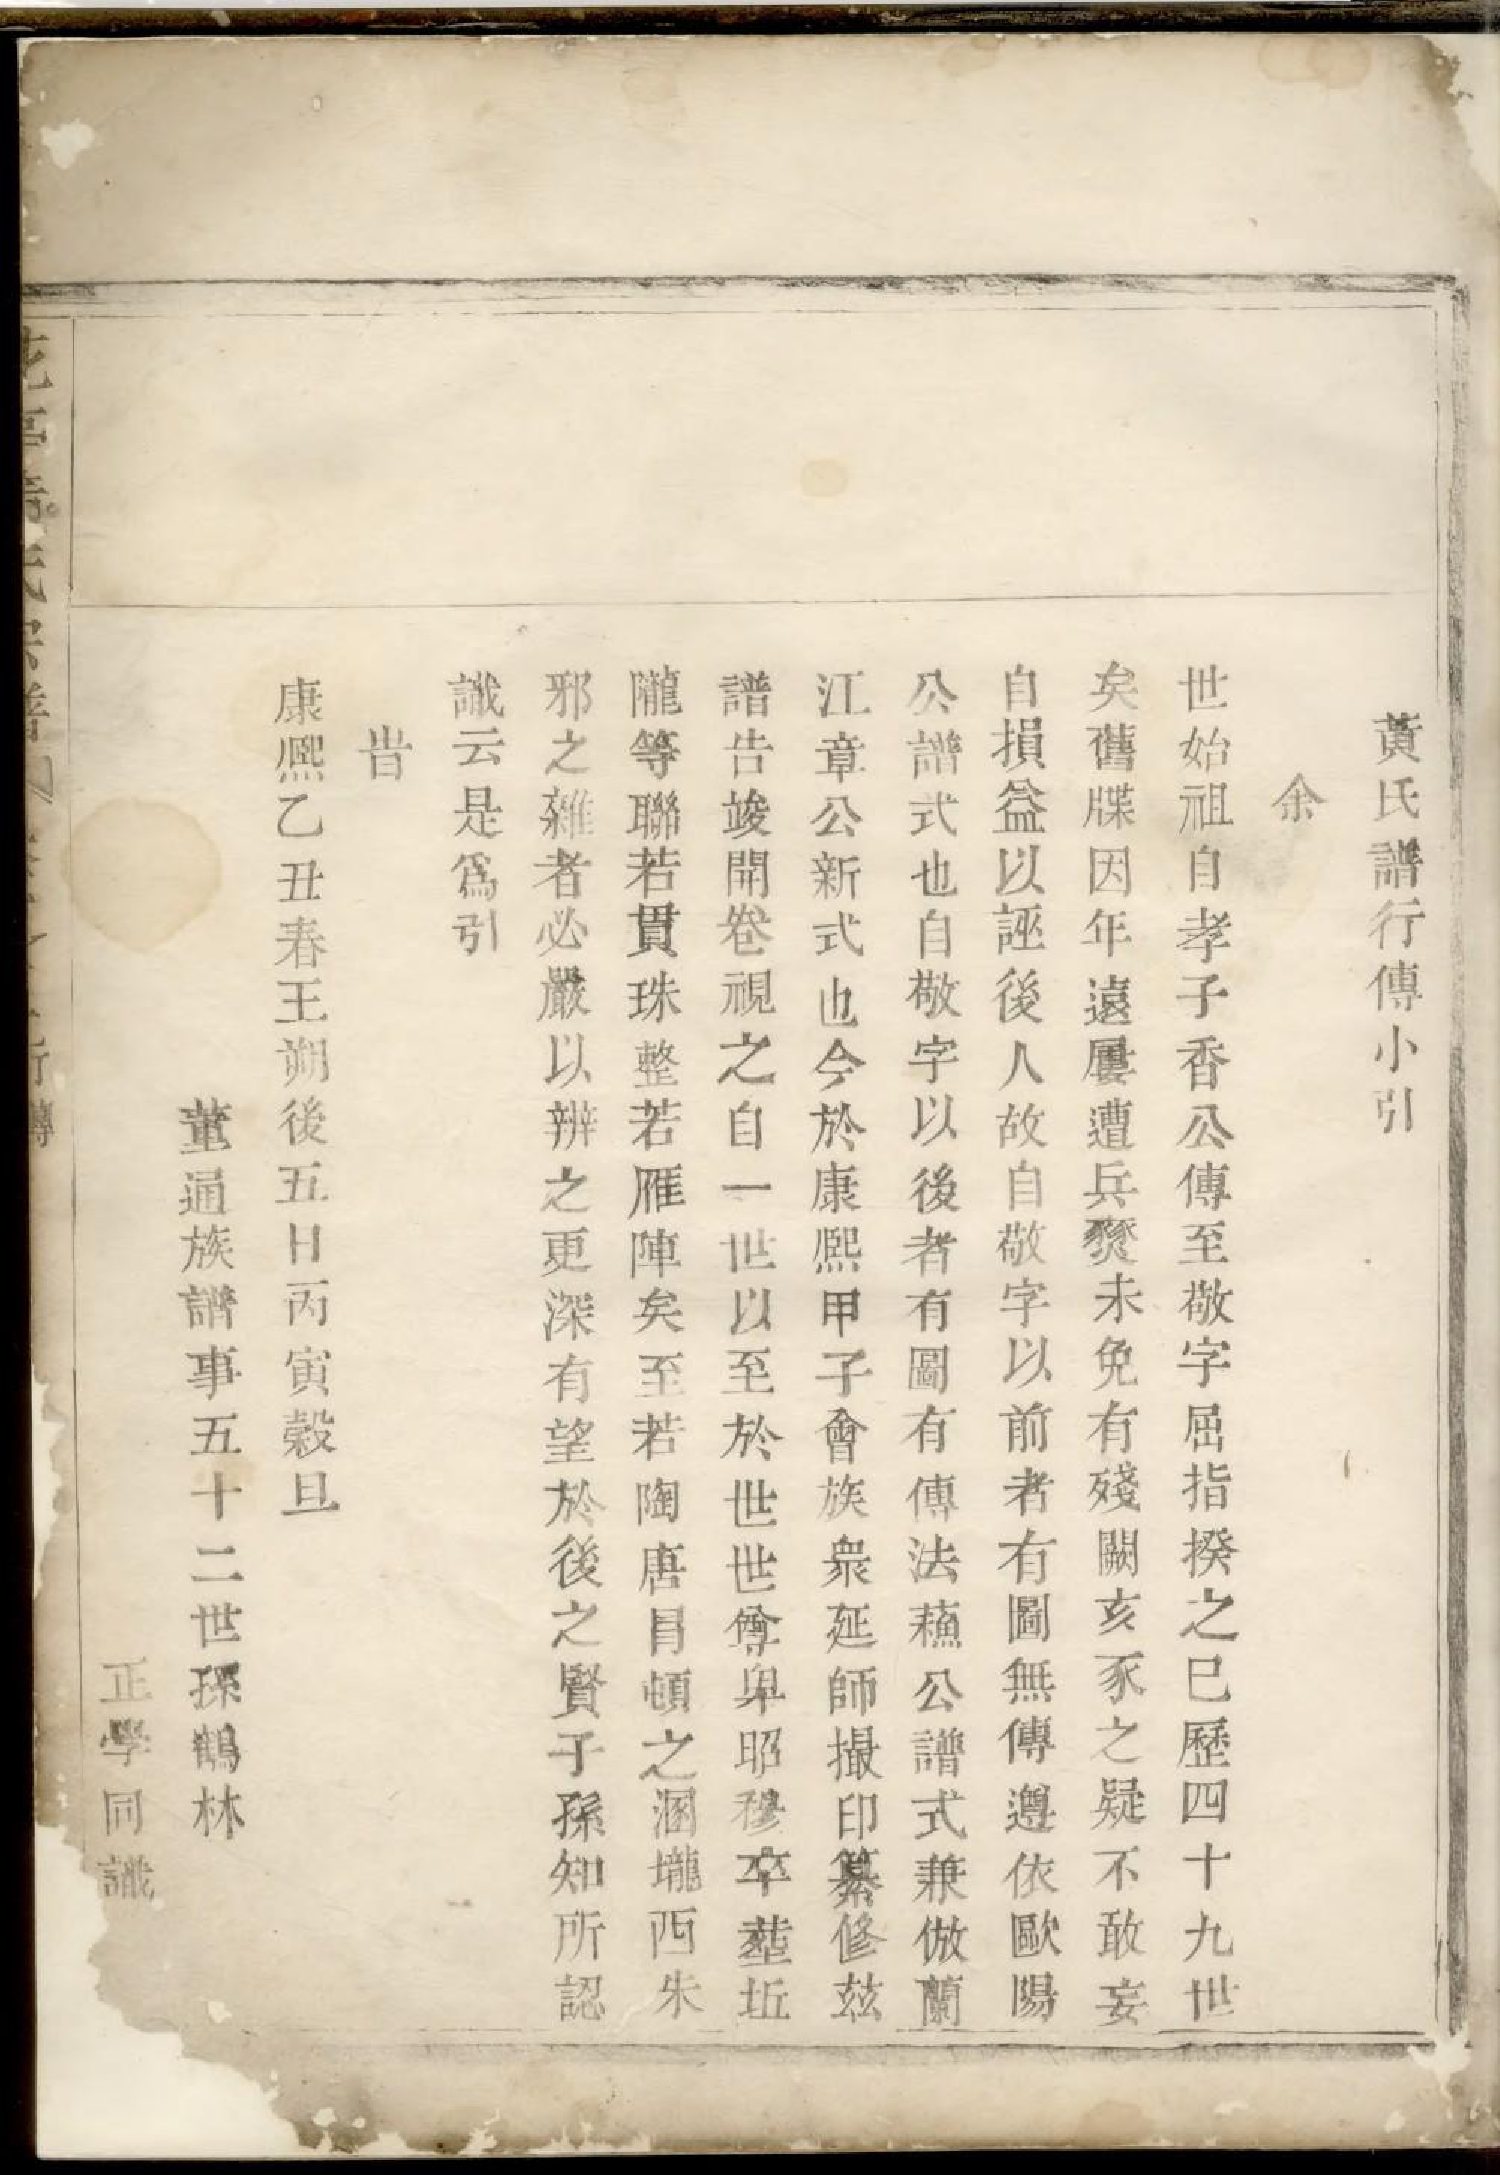 黃氏譜行傳小引
余
世始祖自孝子香公傳至敬字屈指揆之巳歷四十九世
矣舊牒因年遠屢遭兵燹未免有殘闕亥豕之疑不敢妄
自損益以誣後人故自敬字以前者有圖無傳遵依歐陽
公譜式也自敬字以後者有圖有傳法蘓公譜式兼倣蘭
江章公新式也今於康熙甲子會族衆延師撮印纂修兹
譜告竣開卷視之自一世以至於世世尊卑昭穆卒塟坵
隴等聯若貫珠整若雁陣矣至若陶唐冒頓之溷壠西朱
邪之雜者必嚴以辨之更深有望於後之賢子孫知所認
識云是爲引
旹
康熙乙丑春王朔後五日丙寅榖旦
董通族譜事五十二世孫鶴林
正學同識
氏宗譜 行傳